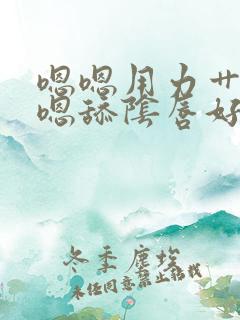 嗯嗯用力艹
嗯舔陰唇好
冬季塵埃
未经同意禁止转载